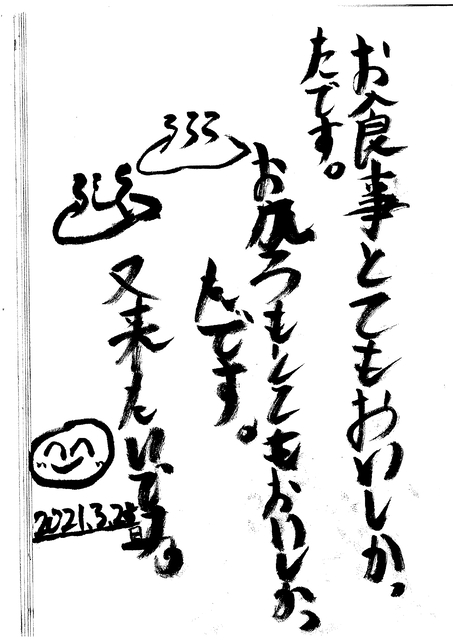 お食事とてもおいしかっ
たです。
お風ろもとてもおいしかっ
たです。
又来たいです。
2021.3.28
日